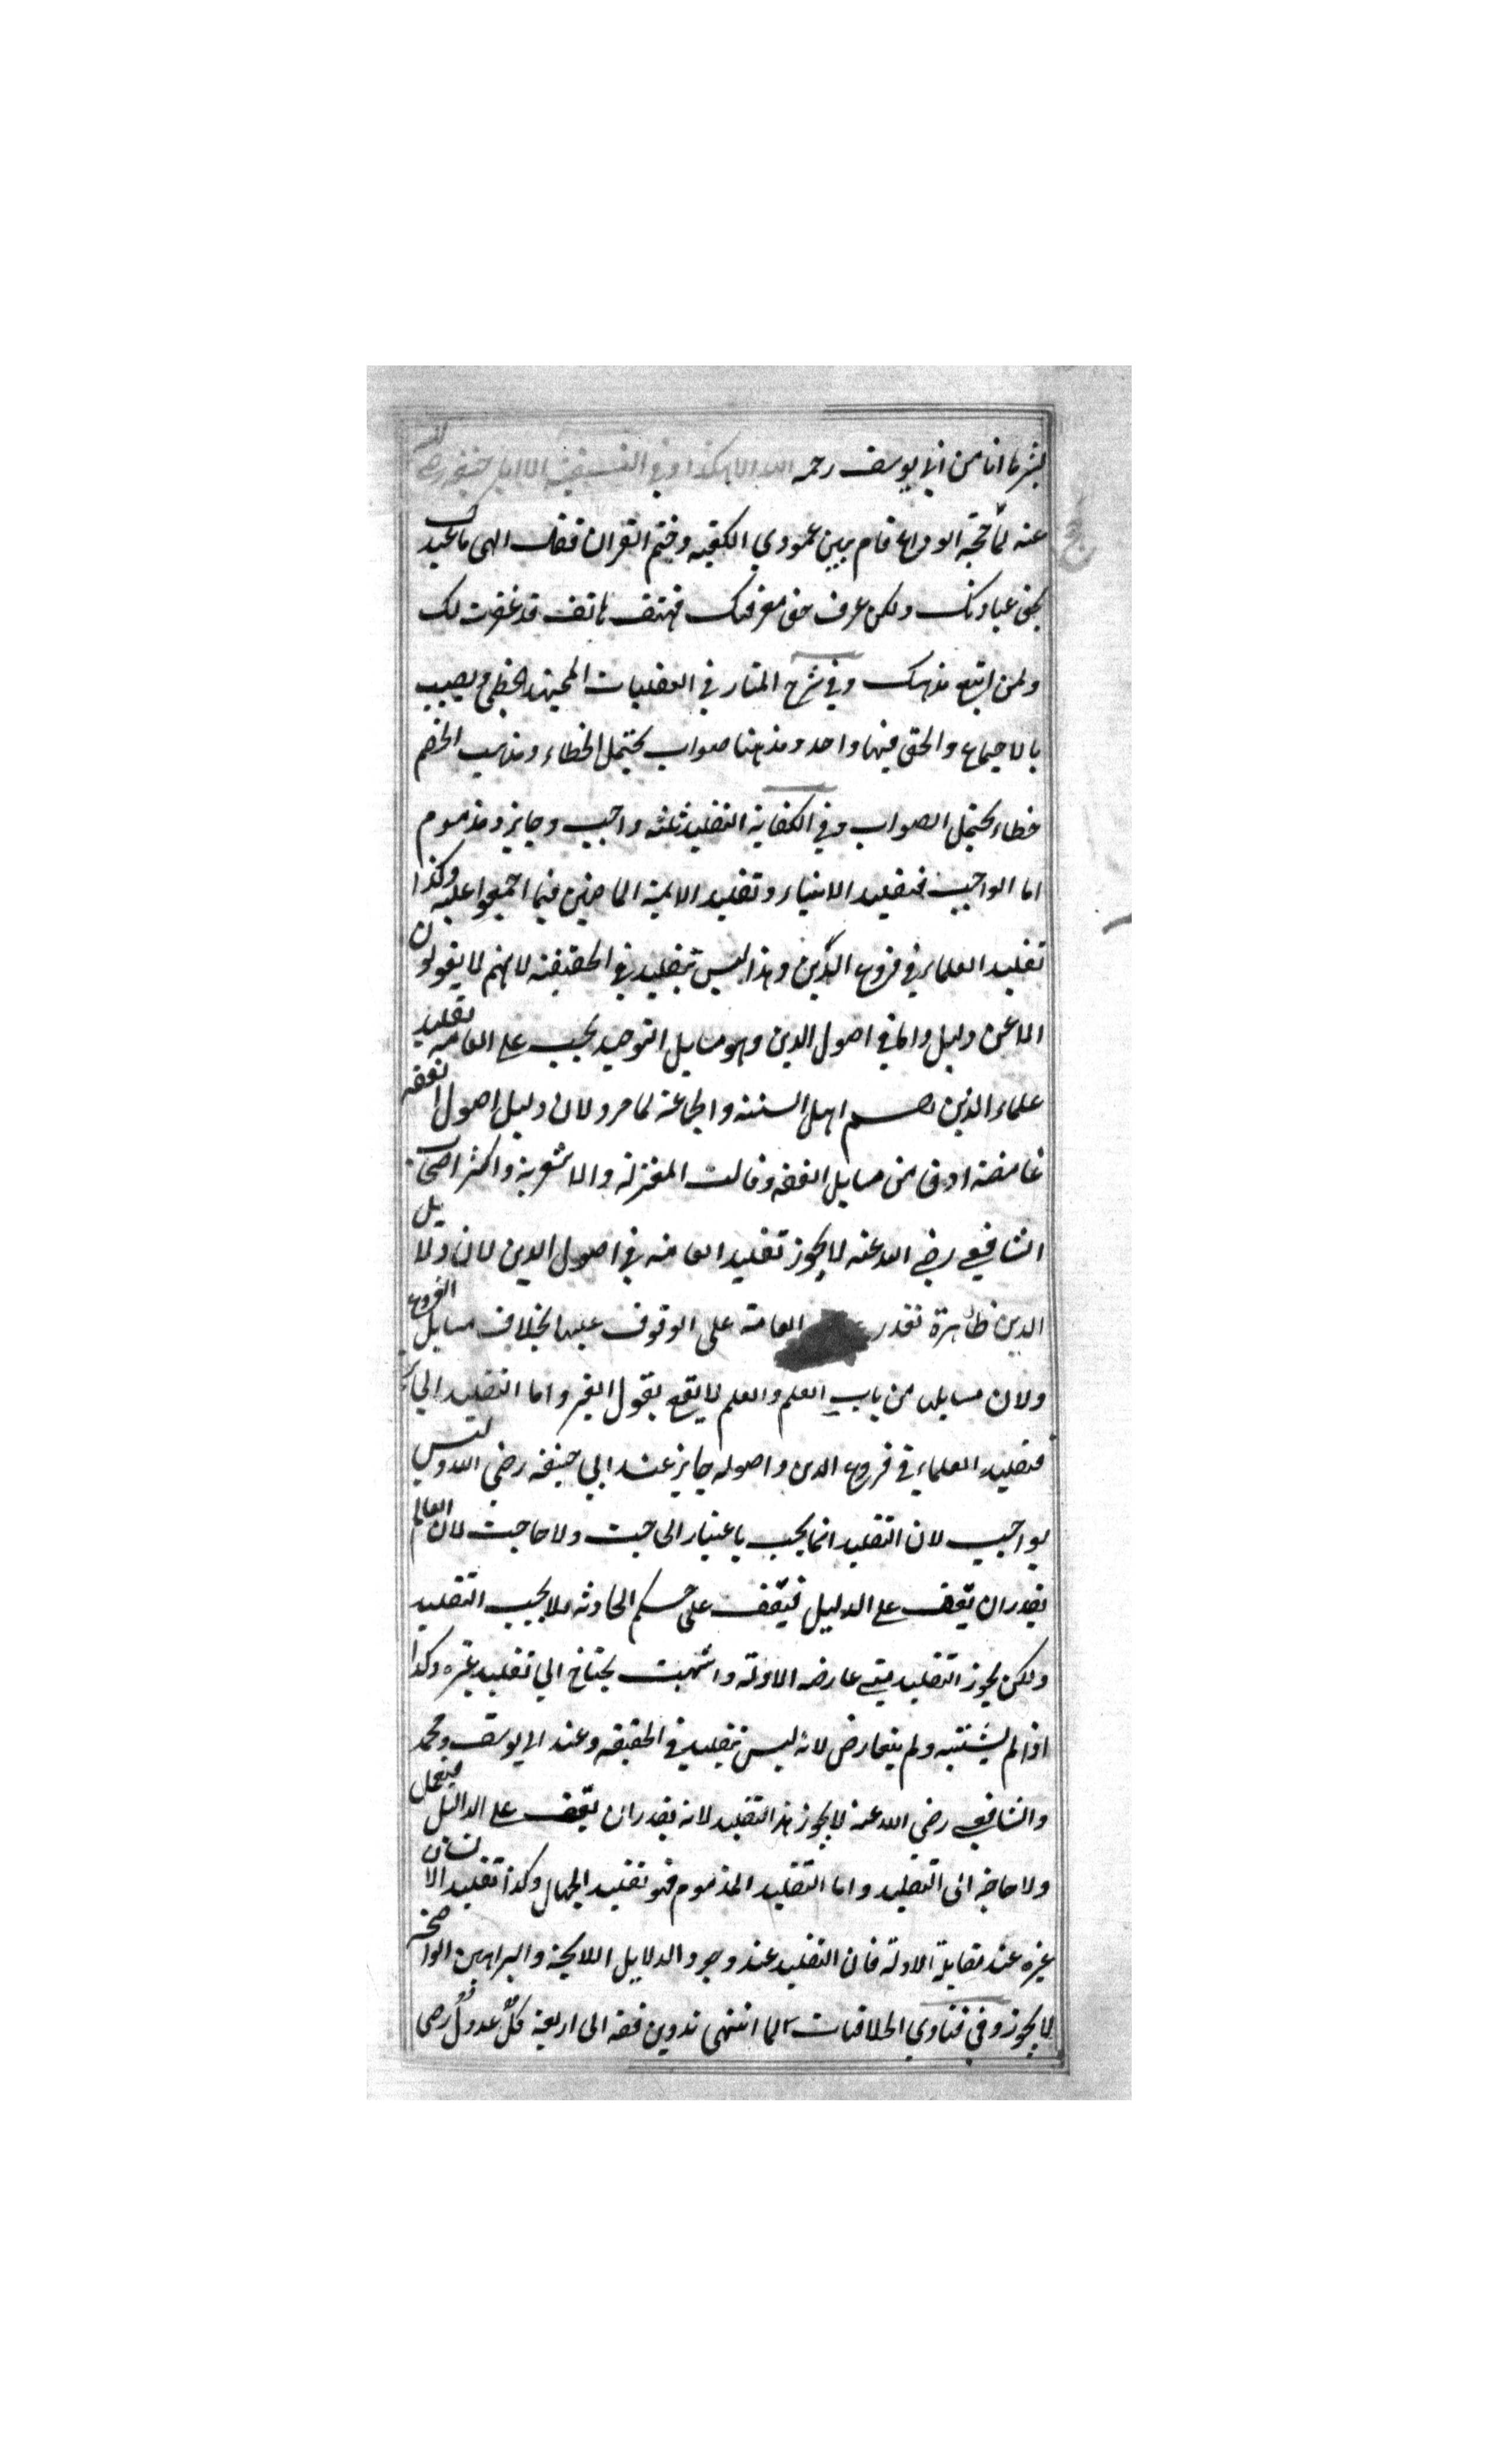 بشر ما انا من ابي يوسف رحمه الله الا هكذا وفي ابا حنيفة رضي الله
عنه لما حجة الوداع قام بين عمودي الكعبة وختم القران فقال الهي ما عبد
بحق عبادتك ولكن عرف حق معرفتك فهتف هاتف قد غفرت لك
ولمن اتبع مذهبك وفي شرح المنار في العقليات المجتهد يخطي ويصيب
بالاجماع والحق فيها واحد ومذهبنا صواب يحتمل الخطاء ومذهب الخصم
خطاء يحتمل الصواب وفي الكفاية التقليد ثلثه واجب وجايز ومذموم
اما الواجب فتقليد الانبياء وتقليد الايمة الماضين فيما اجمعوا عليه وكذا
تقليد العلماء في فروع الدين وهذا ليس بتقليد في الحقيقة لانهم لا يقولون
الا عن دليل واما في اصول الدين وهو مسايل التوحيد يجب على العامه تقليد
علماء الذين هم اهل السنة والجماعة لما مر ولان دليل اصول الفقه
غامضة ادق من مسايل الفقه وقالت المعتزلة والاشعرية واكثر اصحاب
الشافيعي رضي الله عنه لا يجوز تقليد العامه في اصول الدين لان دلايل
الدين ظاهرة تقدر العامة على الوقوف عليها بخلاف مسايل الفروع
ولان مسايله من باب العلم والعلم لا يقع بقول الغير واما التقليد الجايز
فتقليد العلماء في فروع الدين واصوله جايز عند ابي حنيفة رضي الله وليس
بواجب لان التقليد انما يجب باعتبار الحاجت ولا حاجت لان العالم
يقدر ان يقف على الدليل فيقف على حكم الحادثه فلا يجب التقليد
ولكن يجوز التقليد متى عارضه الادلة واشتهبت يحتاج الي تقليد غيره وكذا
اذا لم يشتبه ولم يتعارض لانه ليس بتقليد في الحقيقه وعند ابي يوسف ومحمد
والشافيعي رضي الله عنه لا يجوز هذا التقليد لانه يقدر ان يقف على الدليل فيعمل
ولا حاجة الى التقليد واما التقليد المذموم فهو تقليد الجهال وكذا تقليد الانسان
غيره عند مقابلة الادلة فان التقليد عند وجود الدلايل اللايحة والبراهين الواضحة
لا يجوز وفي فتاوي الخلافيات لما انتهى تدوين فقه الى اربعة كل عدول رضى